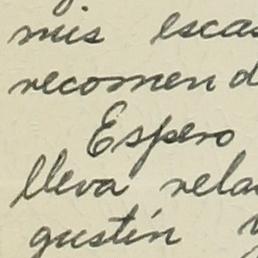 mis escas
recomend
Espero
lleva rela
gustín